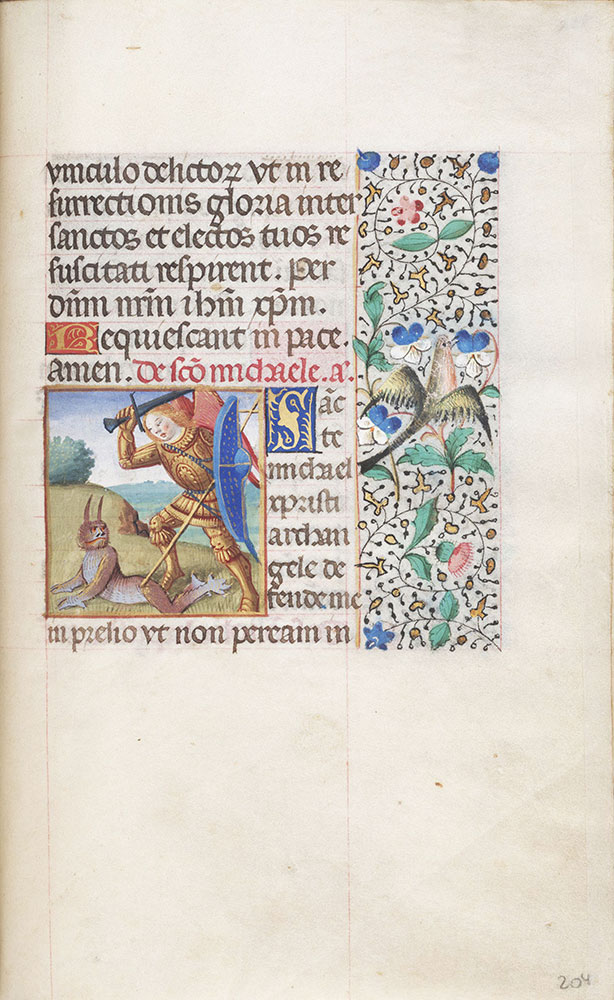 vinculo delictoꝝ vt in re
surrectionis gloria inter
sanctos et electos tuos re
suscitati respirent. Per
dn̄m nr̄m ihm̄ xp̄m.
Requiescant in pace.
amen. De sc̄o michaele. aͣ.
Sāc
te
michael
xpristi
archan
gele de
fende me
in prelio vt non peream in
204